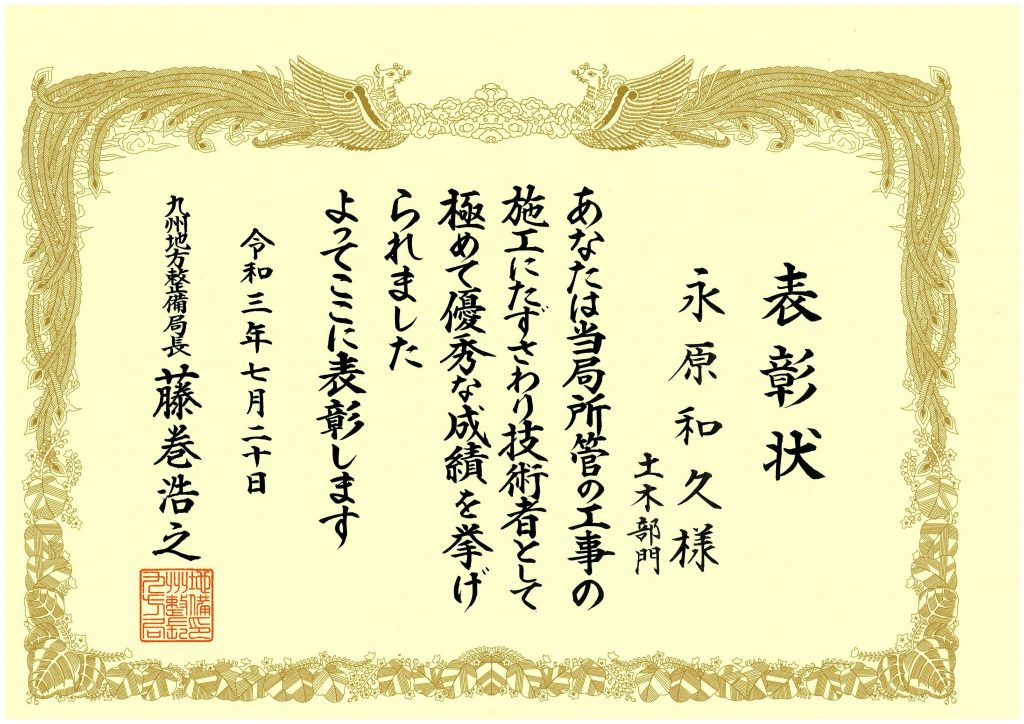 表彰状
永原和久様
土木部門
あなたは当局所管の工事の
施工にたずさわり技術者として
極めて優秀な成績を挙げ
られました
よってここに表彰します
令和三年七月二十日
九州地方整備局長 藤巻浩之